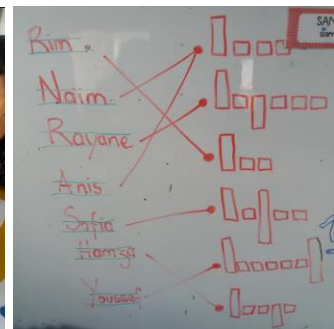 Rim
SAN
Naim
Rayane
Anis
Sofia
Hamza
Youssef